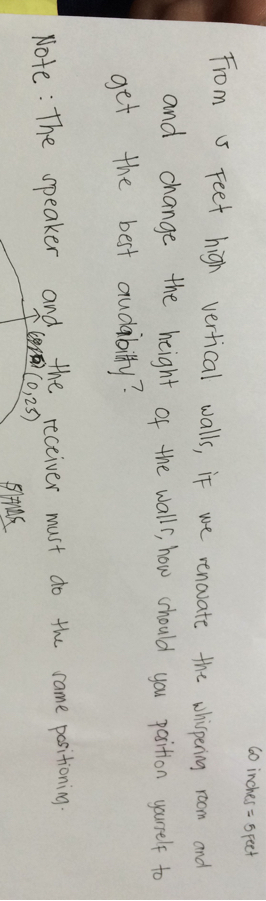 60 inches = 5 feet
From 5 feet high vertical walls, if we renovate the whispering room and
and change the height of the walls, how should you position yourself to
get the best audability?
Note: The speaker and the receiver must do the same positioning.
(0,25)